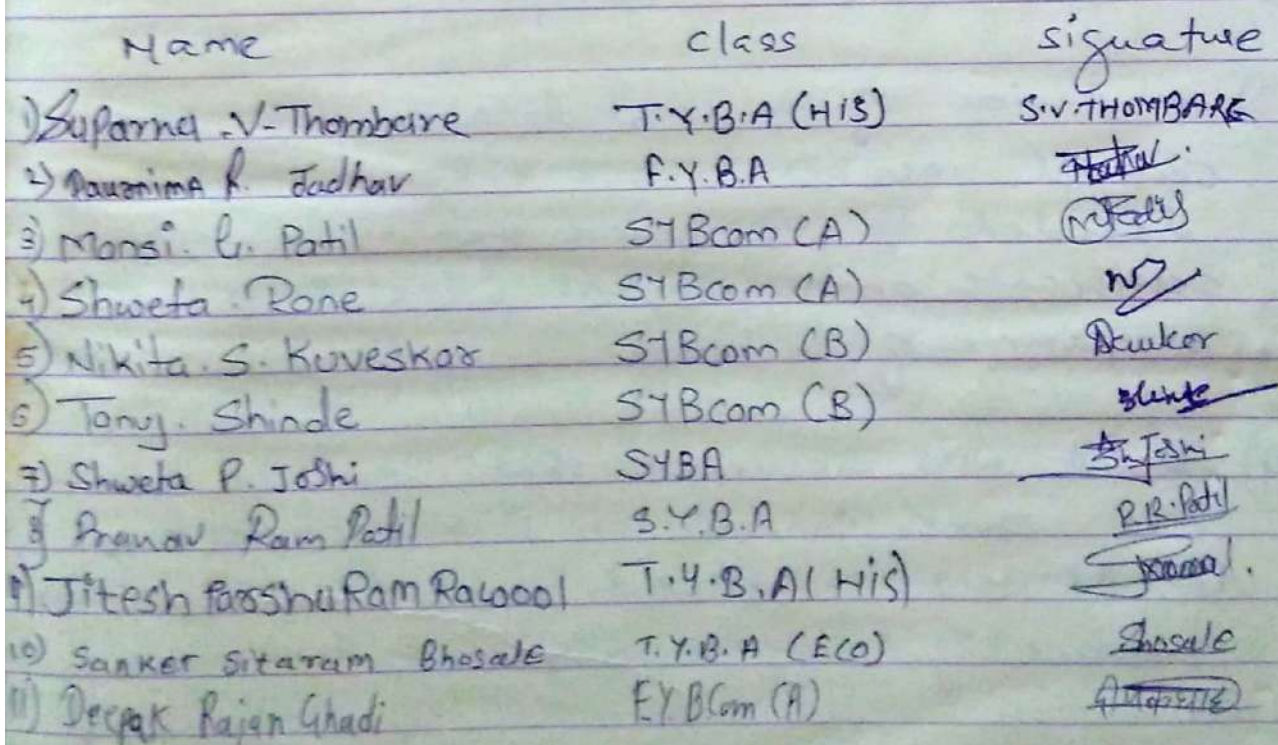 Name class signature
1) Suparna .V-Thombare T.Y.B.A (HIS) S.V.THOMBARE
2) Paurnima R. Jadhav F.Y.B.A
3) Mansi. G. Patil SYBcom (A)
4) Shweta. Rane SYBcom (A)
5) Nikita. S. Kuveskar SYBcom (B)
6) Tanuj. Shinde SYBcom (B) Shinde
7) Shweta P. Joshi SYBA Joshi
8) Pranav Ram Patil S.Y.B.A P.R.Patil
9) Jitesh ParshuRam Rawool T.Y.B.A( HiS)
10) Sanket Sitaram Bhosale T.Y.B.A (ECO) Bhosale
11) Deepak Rajan Ghadi F.Y BCom (A)